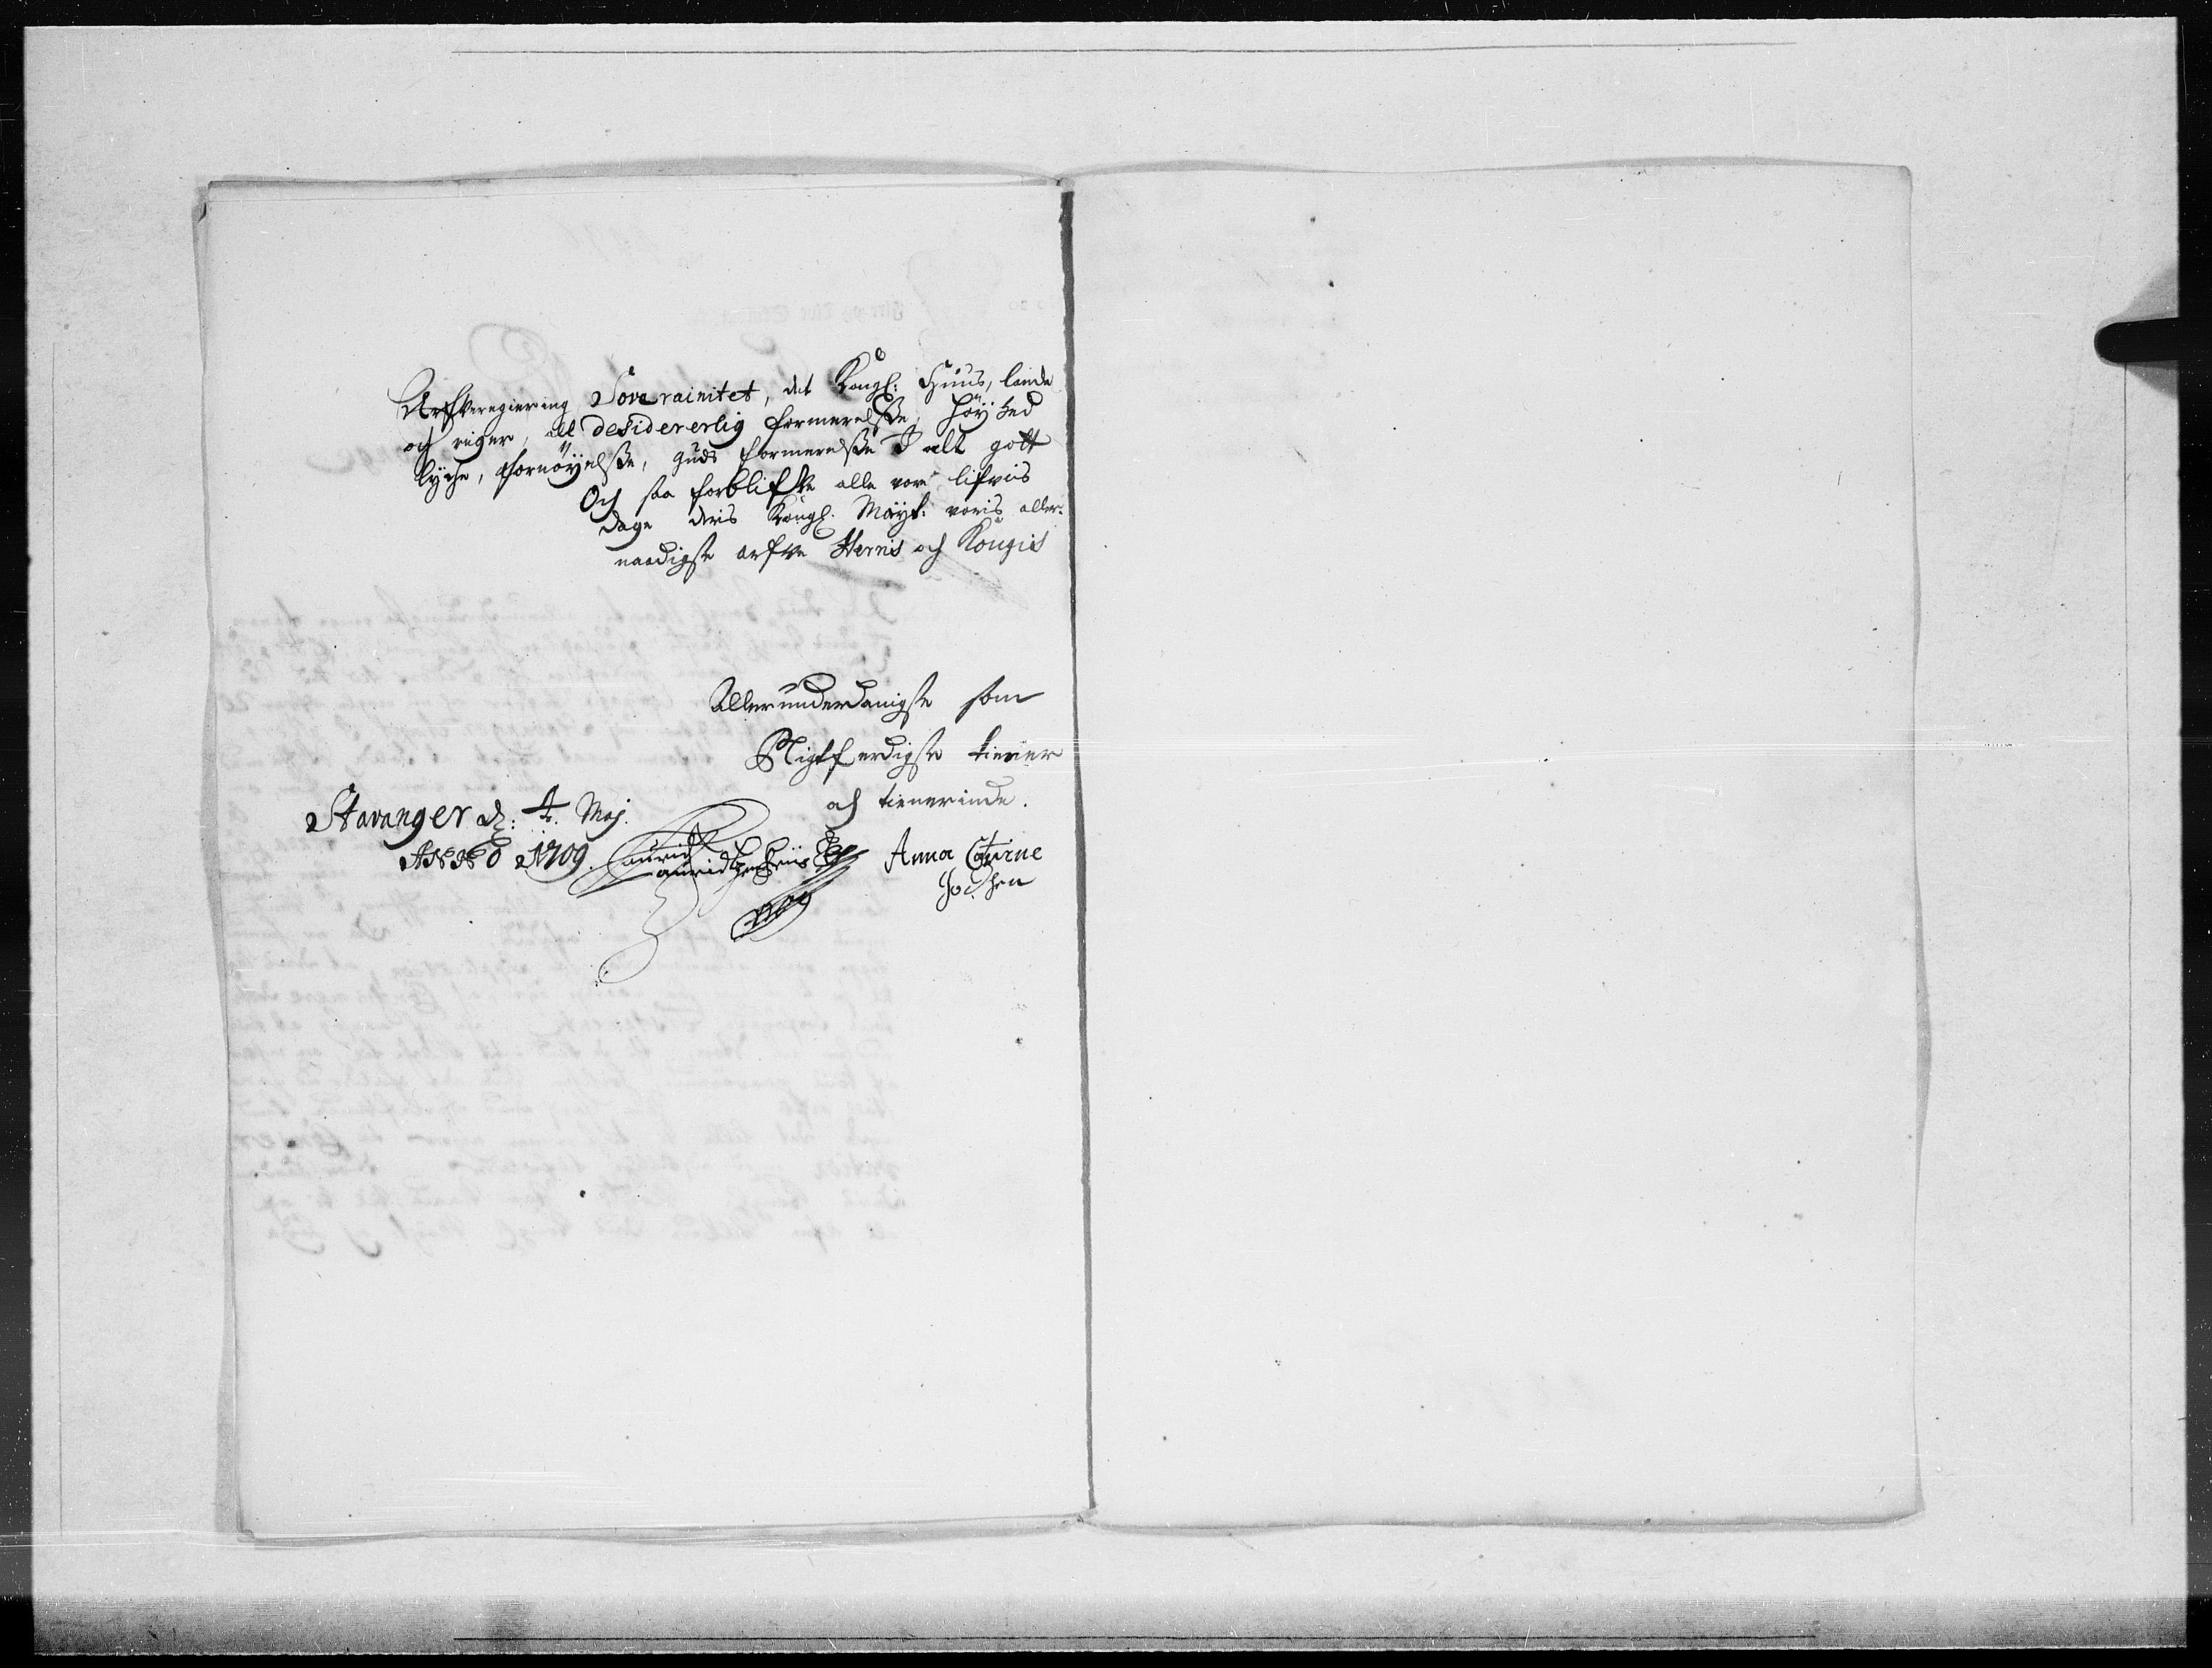 Arfveregiering Soverainitet, det Kongl: Huus, lande
och riger, all desidererlig formerelsße, höÿhed
lÿche, fornöÿelsße, guds formerelsße I alt gott
Och saa forblifve alle vore lifvis
dage dris Kongl. Maÿt: voris aller-
naadigste arfve Herris och Kongis
Allerunderdanigste som
Pligtferdigste tiener
och tienerinde.
Stavanger d: 4. Maj.
ANNO 1709.
Laurid Lauridtzen
Anna Catrine
1709